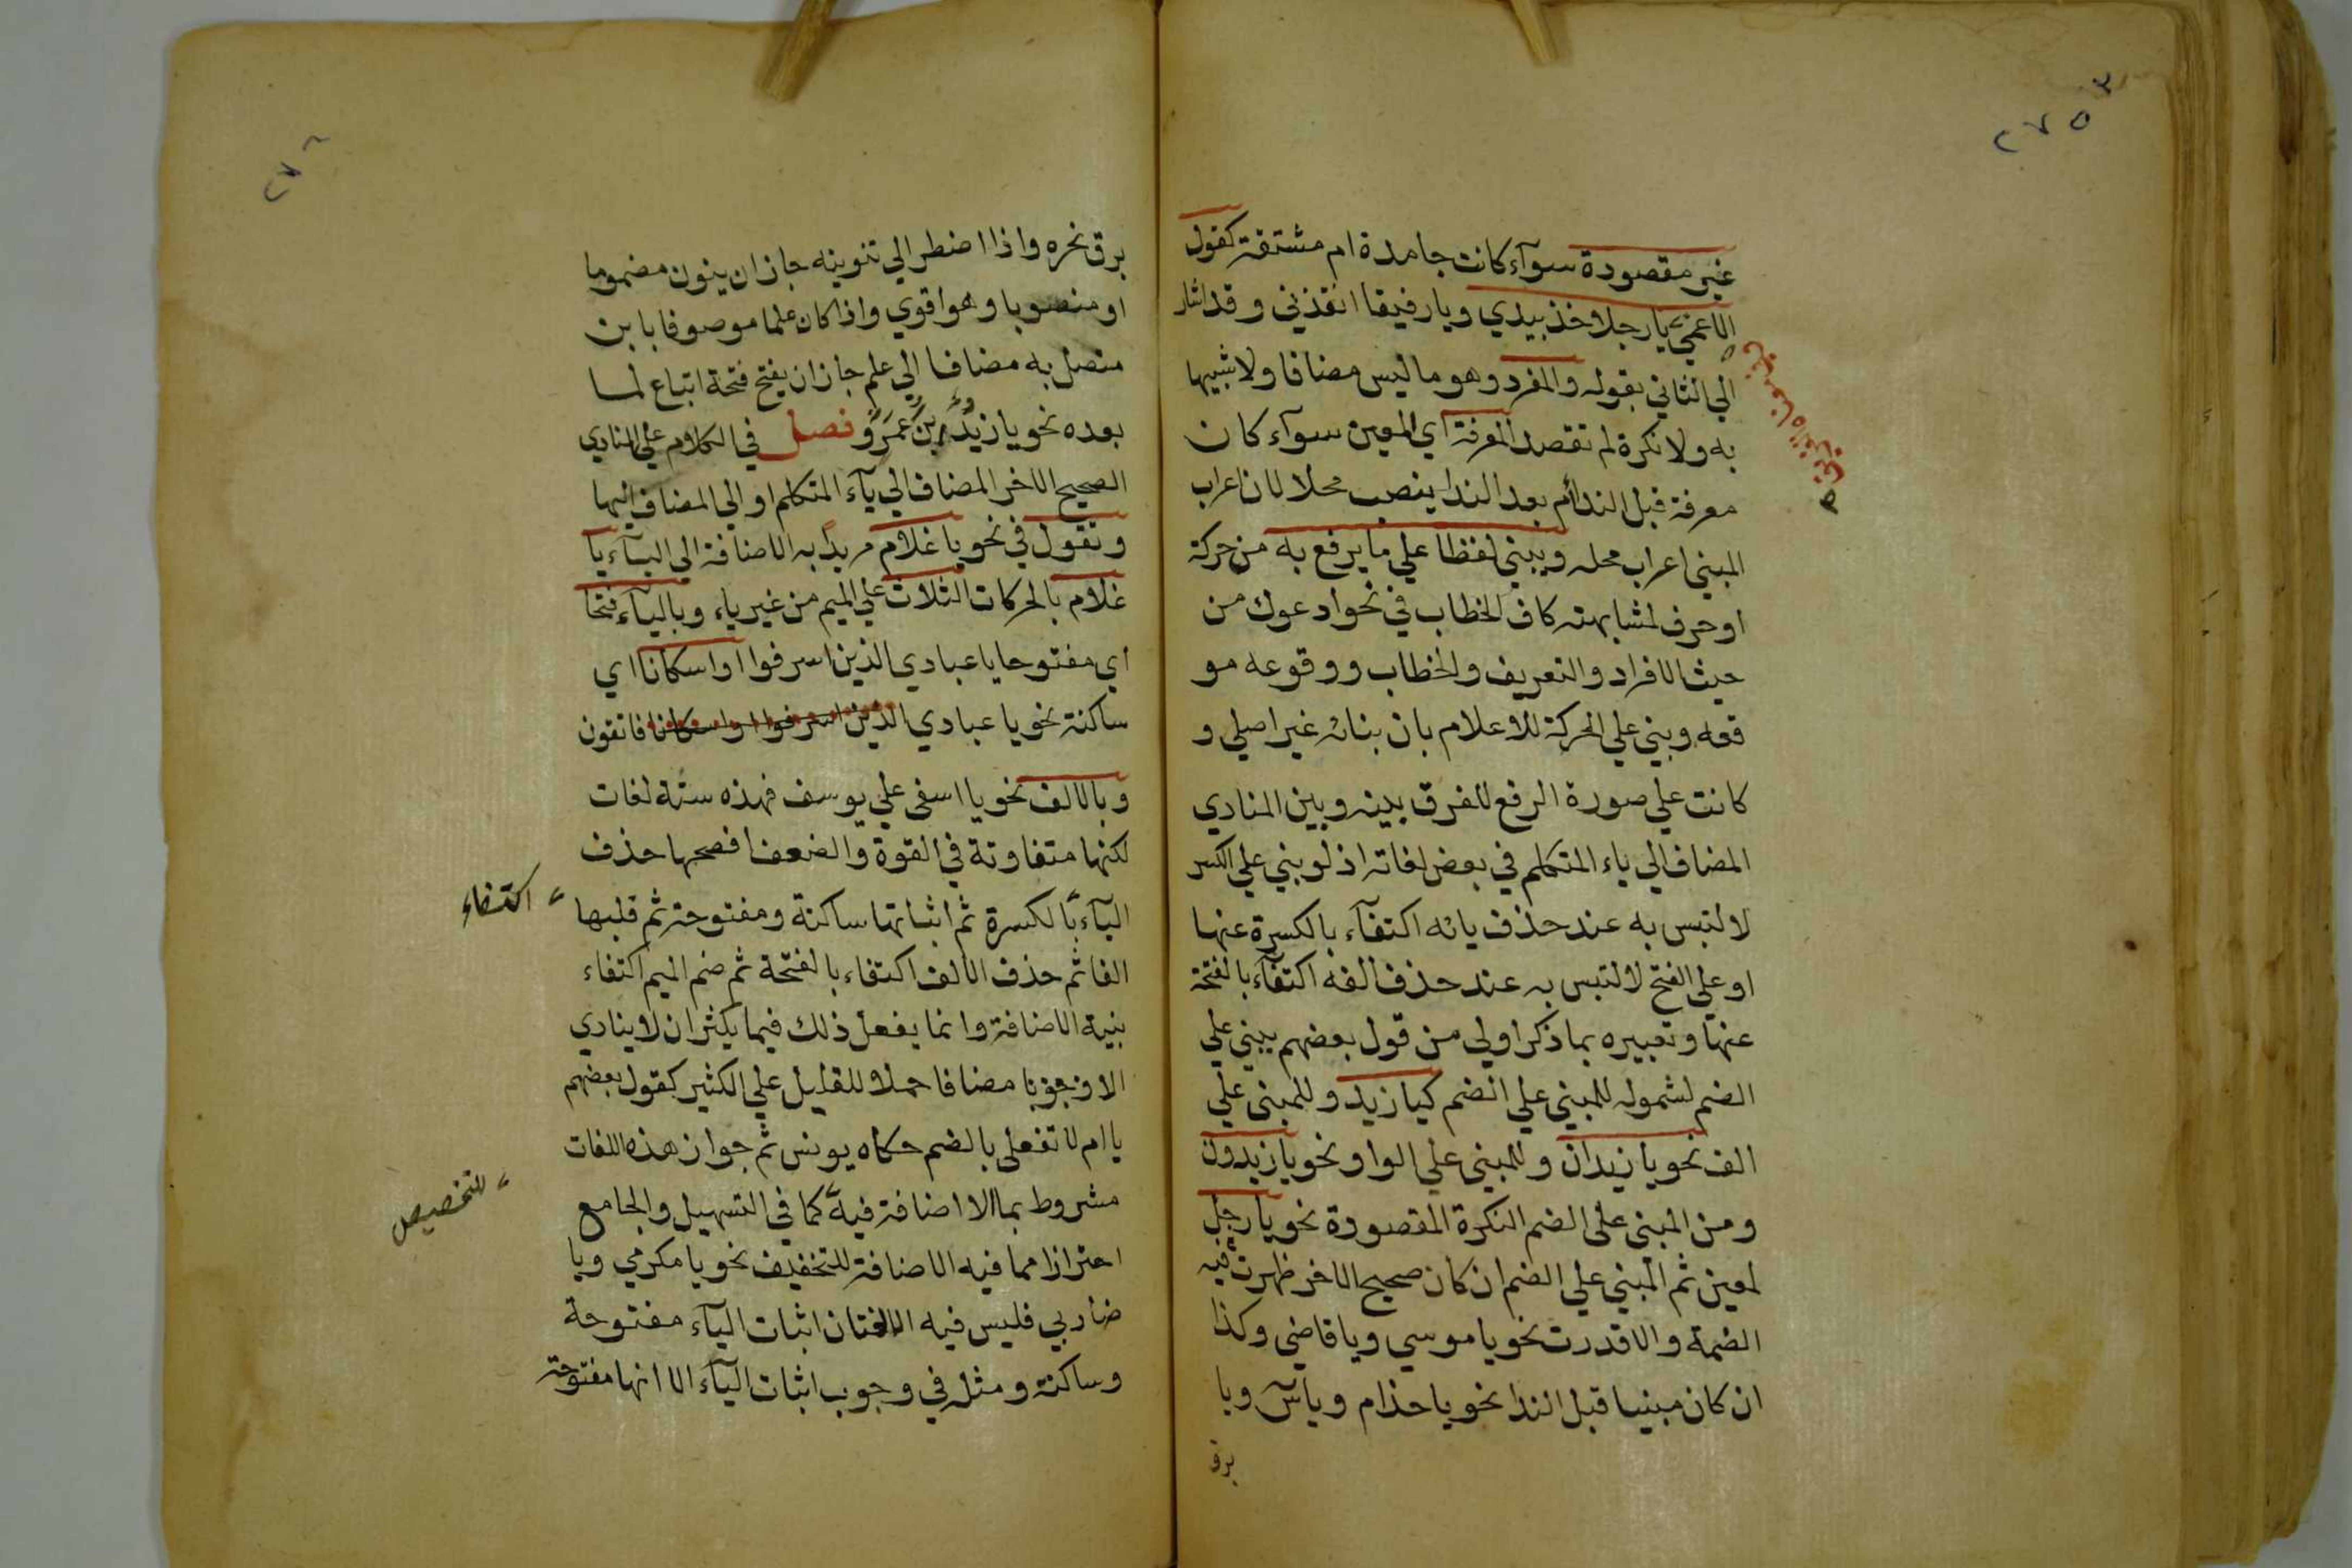 غير مقصودة سوآء كانت جامدة ام مشتقة كقول
الاعمي يا رجلا خذ بيدي ويا رفيقا انقذني وقد اشار
الي الثاني بقوله والمفرد وهو ما ليس مضافا ولا شبيها
به ولا نكرة لم تقصد المعرفة اي المعين سوآء كان
معرفة قبل الندا أم بعد الندا ينصب محلا لان اعراب
المبني اعراب محله ويبني لفظا علي ما يرفع به من حركة
او حرف لمشابهته كاف الخطاب في نحو ادعوك من
حيث الافراد والتعريف والخطاب ووقوعه مو
قعه وبني علي الحركة للاعلام بان بنائه غير اصلي و
كانت علي صورة الرفع للفرق بينه وبين المنادي
المضاف الي ياء المتكلم في بعض لغاته اذ لو بني علي الكسر
لالتبس به عند حذف يائه اكتفآء بالكسرة عنها
او علي الفتح لالتبس به عند حذف الفه اكتفآء بالفتحة
عنها وتعبيره بما ذكر اولي من قول بعضهم يبني علي
الضم لشموله للمبني علي الضم كيا زيد وللمبني علي
الف نحو يا زيدان وللمبني علي الواو نحو يا زيدون
ومن المبني علي الضم النكرة المقصودة نحو يا رجل
لمعين ثم المبني علي الضم ان كان صحيح الاخر ظهرت فيه
الضمة والا قدرت نحو يا موسي ويا قاضي وكذا
ان كان مبنيا قبل الندا نحو يا حذام ويا س ويا
برق
٢٧٥
برق نحره واذا اضطر الي تنوينه جاز ان ينون مضموما
او منصوبا وهو اقوي واذا كان علما موصوفا بابن
متصل به مضافا الي علم جاز ان يفتح فتحة اتباع لما
بعده نحو يا زيد بن عمرو فصل في الكلام علي المنادي
الصحيح الاخر المضاف الي يآء المتكلم او الي المضاف اليها
وتقول في نحو يا غلام مريدا به الاضافة الي اليآء يا
غلام بالحركات الثلاث علي الميم من غير ياء وباليآء فتحا
اي مفتوحا يا عبادي الذين اسرفوا او اسكانا اي
ساكنة نحو يا عبادي الذين اسرفوا او اسكانا فاتقون
وبالالف نحو يا اسفي علي يوسف فهذه ستة لغات
لكنها متفاوتة في القوة والضعف افصحها حذف
اليآء بالكسرة ثم اثباتها ساكنة ومفتوحة ثم قلبها
اكتفاء
الفا ثم حذف الالف اكتفاء بالفتحة ثم ضم الميم اكتفاء
بنية الاضافة وانما يفعل ذلك فيما يكثر ان لا ينادي
الا وجوبا مضافا حملا للقليل علي الكثير كقول بعضهم
يا ام لا تفعلي بالضم حكاه يونس ثم جواز هذه اللغات
مشروط بما الا اضافة فيه كما في التسهيل والجامع
للتخصيص
احترازا مما فيه الاضافة للتخفيف نحو يا مكرمي ويا
ضاربي فليس فيه الا لغتان اثبات اليآء مفتوحة
وساكنة ومثله في وجوب اثبات اليآء الا انها مفتوحة